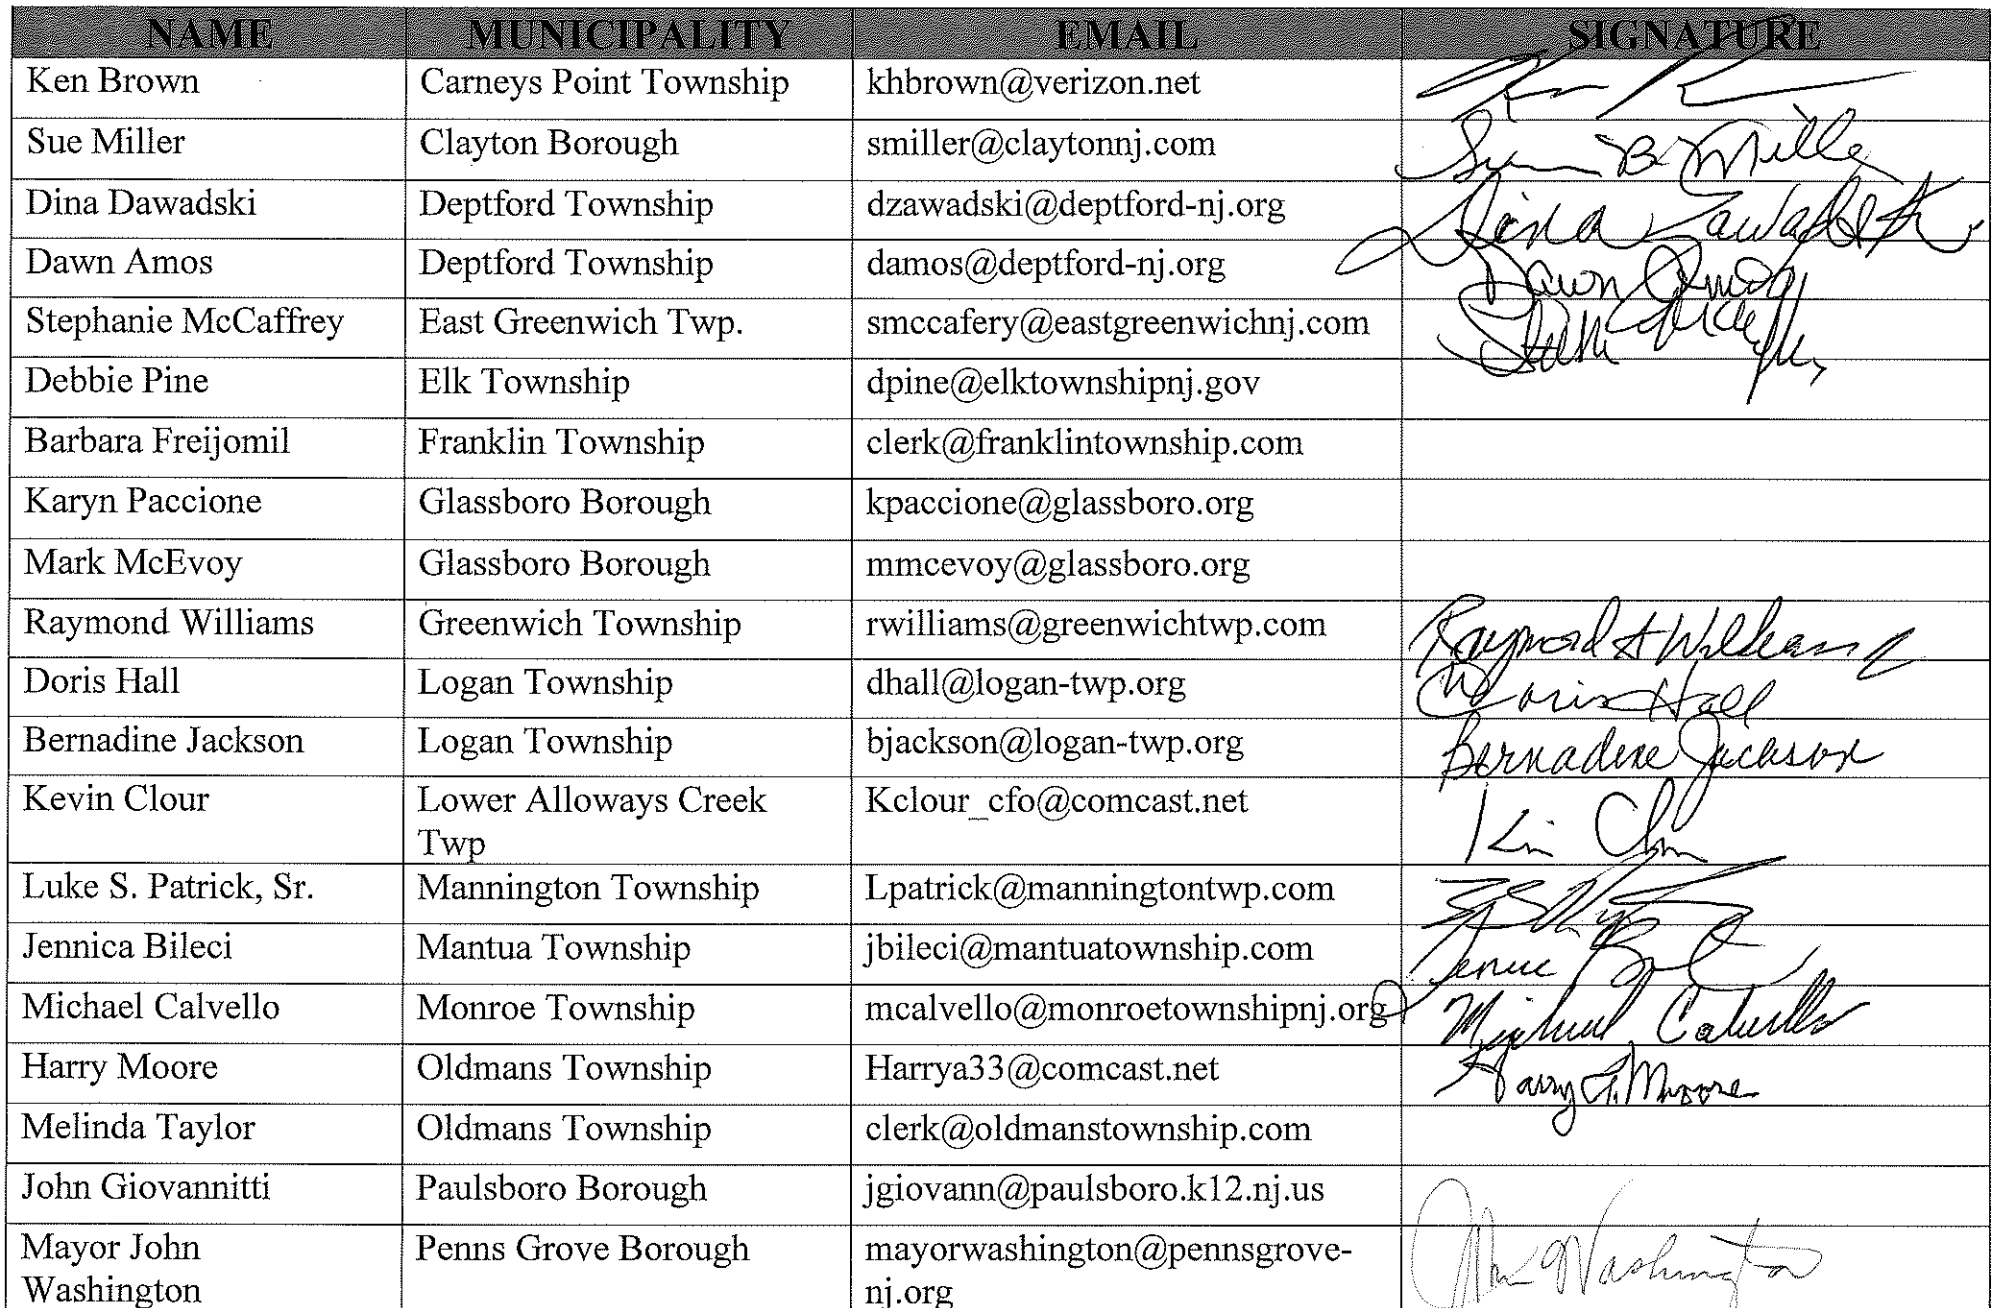 NAME MUNICIPALITY EMAIL SIGNATURE
Ken Brown Carneys Point Township khbrown@verizon.net
Sue Miller Clayton Borough smiller@claytonnj.com Susan B. Miller
Dina Dawadski Deptford Township dzawadski@deptford-nj.org Dina Zawadski
Dawn Amos Deptford Township damos@deptford-nj.org Dawn Amos
Stephanie McCaffrey East Greenwich Twp. smccafery@eastgreenwichnj.com
Debbie Pine Elk Township dpine@elktownshipnj.gov
Barbara Freijomil Franklin Township clerk@franklintownship.com
Karyn Paccione Glassboro Borough kpaccione@glassboro.org
Mark McEvoy Glassboro Borough mmcevoy@glassboro.org
Raymond Williams Greenwich Township rwilliams@greenwichtwp.com Raymond A Williams
Doris Hall Logan Township dhall@logan-twp.org Doris Hall
Bernadine Jackson Logan Township bjackson@logan-twp.org Bernadine Jackson
Kevin Clour Lower Alloways Creek Kclour_cfo@comcast.net
Twp
Luke S. Patrick, Sr. Mannington Township Lpatrick@manningtontwp.com
Jennica Bileci Mantua Township jbileci@mantuatownship.com
Michael Calvello Monroe Township mcalvello@monroetownshipnj.org Michael Calvello
Harry Moore Oldmans Township Harrya33@comcast.net Harry A. Moore
Melinda Taylor Oldmans Township clerk@oldmanstownship.com
John Giovannitti Paulsboro Borough jgiovann@paulsboro.k12.nj.us
Mayor John Penns Grove Borough mayorwashington@pennsgrove- Washington
Washington nj.org